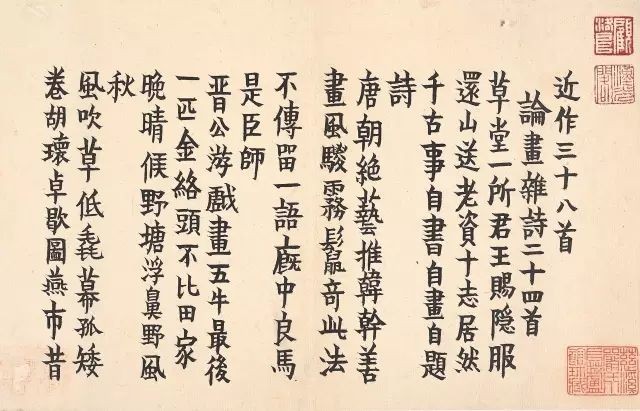 近作三十八首
論畫雜詩二十四首
草堂一所君王賜隐服
還山送老資十志居然
千古事自書自畫自題
詩
唐朝絶藝推韓幹善
畫風騣霧鬣奇此法
不傳留一語廐中良馬
是臣師
晋公游戲畫五牛最後
一匹金絡頭不比田家
晚晴候野塘浮鼻野風
秋
風吹草低毳幕孤矮
卷胡瓌卓歇圖燕市昔